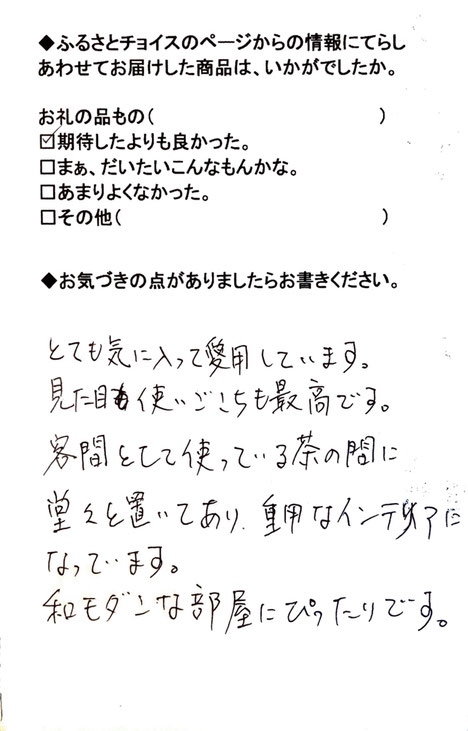 ◆ふるさとチョイスのページからの情報にてらし
あわせてお届けした商品は、いかがでしたか。
お礼の品もの(　　　　　　　　　　)
☑期待したよりも良かった。
□まぁ、だいたいこんなもんかな。
□あまりよくなかった。
□その他(　　　　　　　　　　　　)
◆お気づきの点がありましたらお書きください。
とても気に入って愛用しています。
見た目も使いごこちも最高です。
客間として使っている茶の間に
堂々と置いてあり、重用なインテリアに
なっています。
和モダンな部屋にぴったりです。